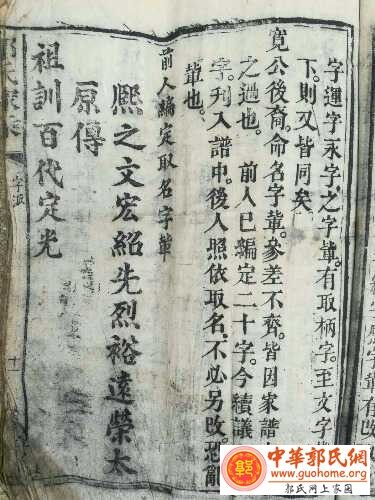 字運字永字之字輩有取柄字至文字
下則又皆同矣
寬公後裔命名字輩參差不齊皆因家譜
之過也 前人已編定二十字今續議
字刋入譜中後人照依取名不必另改恐亂
輩也
前人編定取名字輩
熙之文宏紹先烈裕遠榮太
原傳
祖訓百代定光
氏家乘
字派
十
中華郭氏網
www.guohome.com
郭氏網上家園